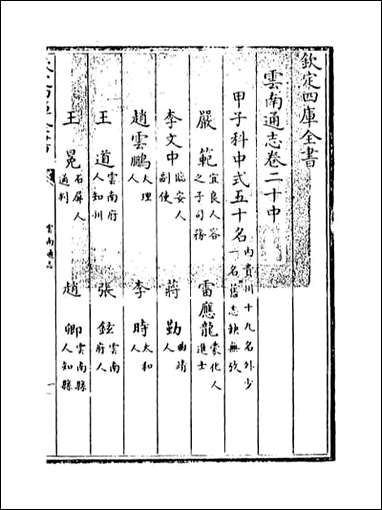 欽定四庫全書
雲南通志卷二十中
甲子科中式五十名內貴州十九名外少一名舊志缺無攷
嚴範宜良人容之子司務
雷應龍蒙化人進士
李文中臨安人副使
蔣勤曲靖人
趙雲鵬大理人
李時太和人
王道雲南府人知州
張鉉雲南府人
王冕石屏人通判
趙卿雲南縣人知縣
雲南通志
一